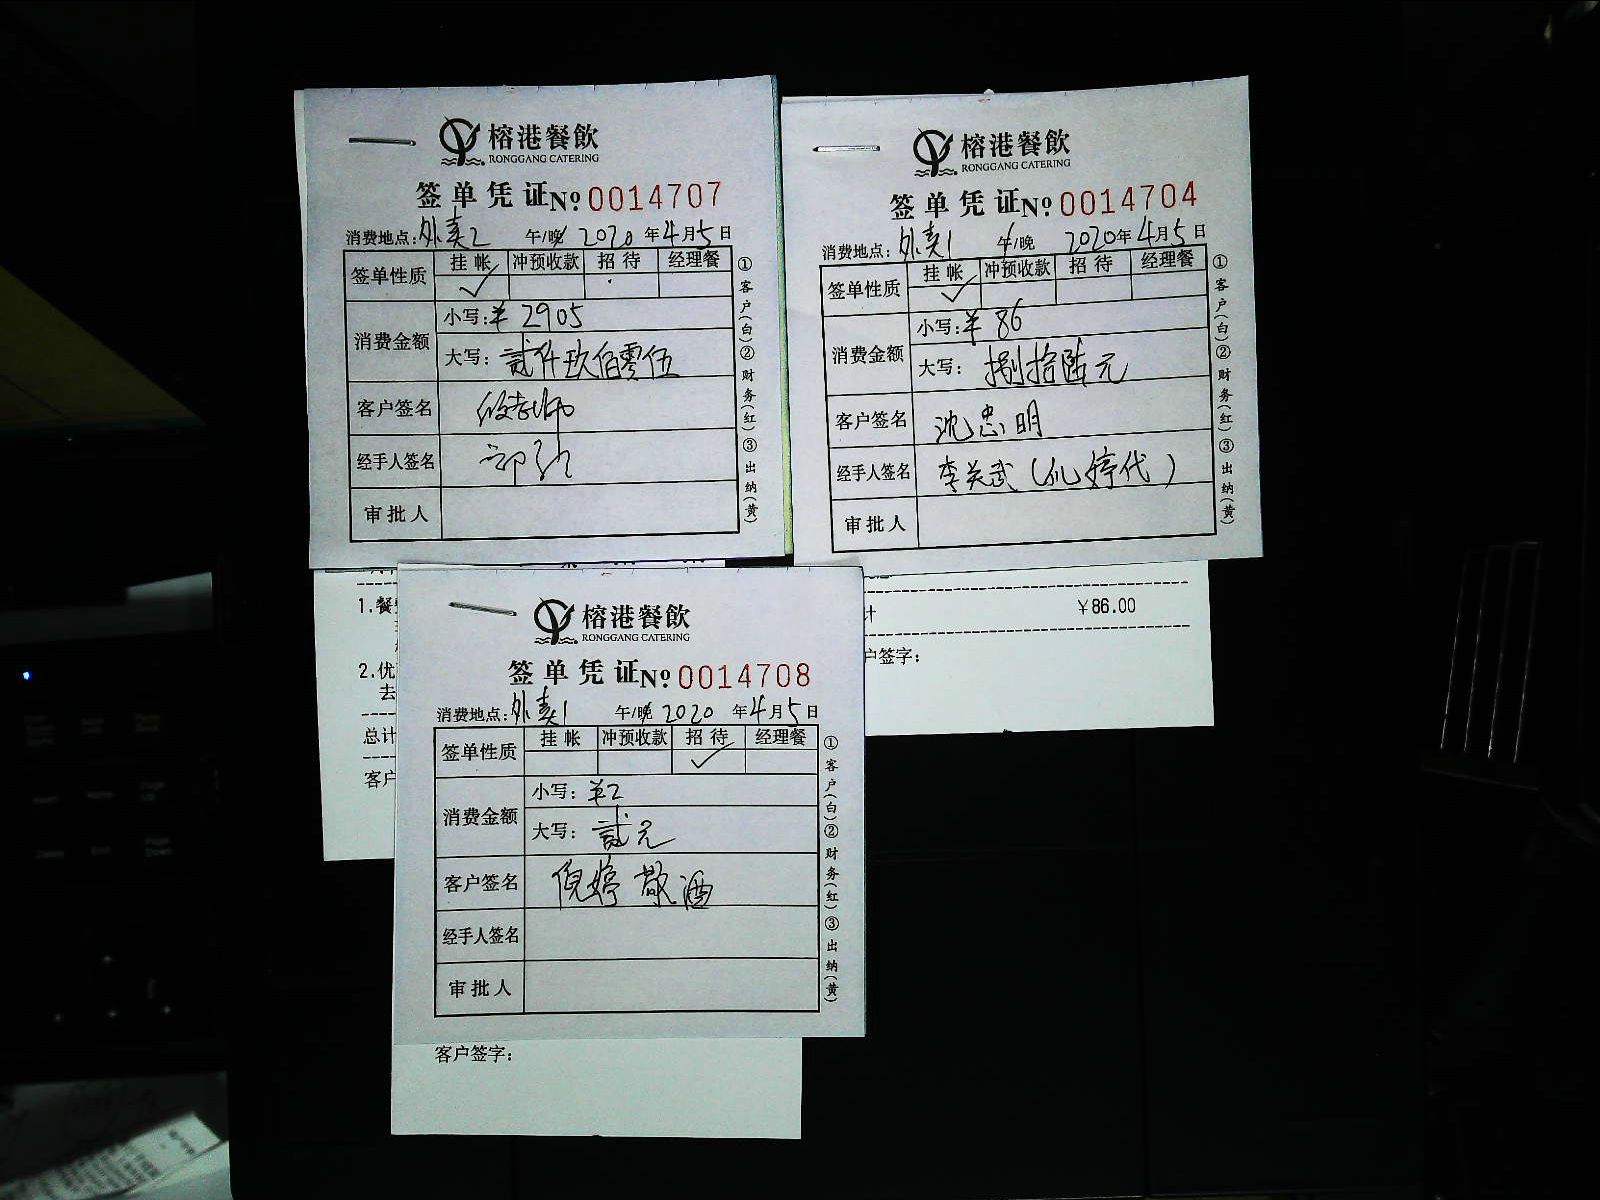 榕港餐飲
RONGGANG CATERING
签单凭证 No 0014707
消费地点:外卖2 午/晚 2020年4月5日
签单性质 挂帐 冲预收款 招待 经理餐
✓
消费金额 小写:¥2905
大写:贰仟玖佰零伍
客户签名 段老师
经手人签名
审批人
①客户(白)②财务(红)③出纳(黄)
榕港餐飲
RONGGANG CATERING
签单凭证 No 0014704
消费地点:外卖1 午/晚 2020年4月5日
签单性质 挂帐 冲预收款 招待 经理餐
✓
消费金额 小写:¥86
大写:捌拾陆元
客户签名 沈忠明
经手人签名 李关武(倪婷代)
审批人
①客户(白)②财务(红)③出纳(黄)
计 ¥86.00
户签字:
1.餐
2.优
去
总计
客户
榕港餐飲
RONGGANG CATERING
签单凭证 No 0014708
消费地点:外卖1 午/晚 2020年4月5日
签单性质 挂帐 冲预收款 招待 经理餐
✓
消费金额 小写:¥2
大写:贰元
客户签名 倪婷 散酒
经手人签名
审批人
①客户(白)②财务(红)③出纳(黄)
客户签字: